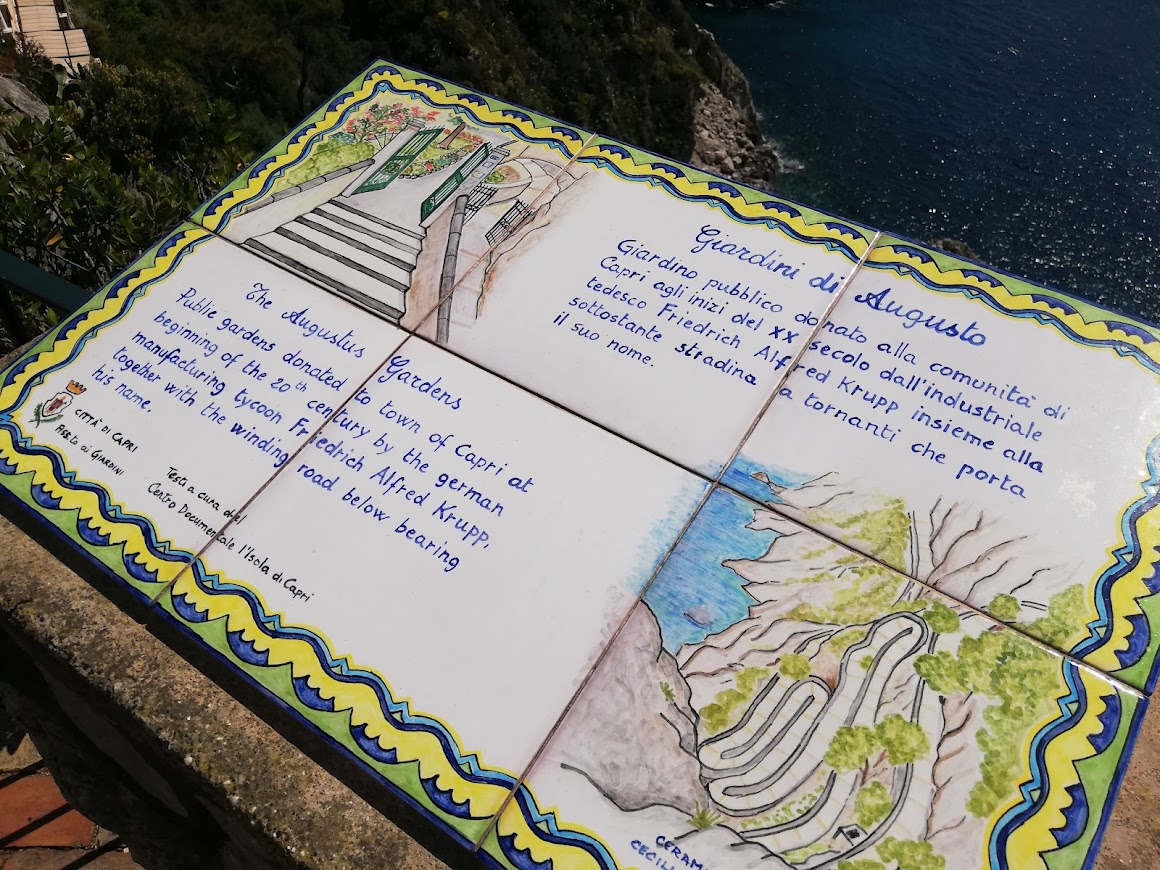 Giardini di Augusto
Giardino pubblico donato alla comunità di
Capri agli inizi del XX secolo dall'industriale
tedesco Friedrich Alfred Krupp insieme alla
sottostante stradina a tornanti che porta
il suo nome.
The Augustus Gardens
Public gardens donated to town of Capri at
beginning of the 20th century by the german
manufacturing tycoon Friedrich Alfred Krupp,
together with the winding road below bearing
his name.
CITTÀ DI CAPRI
Ass.to ai GIARDINI
Testi a cura del
Centro Documentale l'Isola di Capri